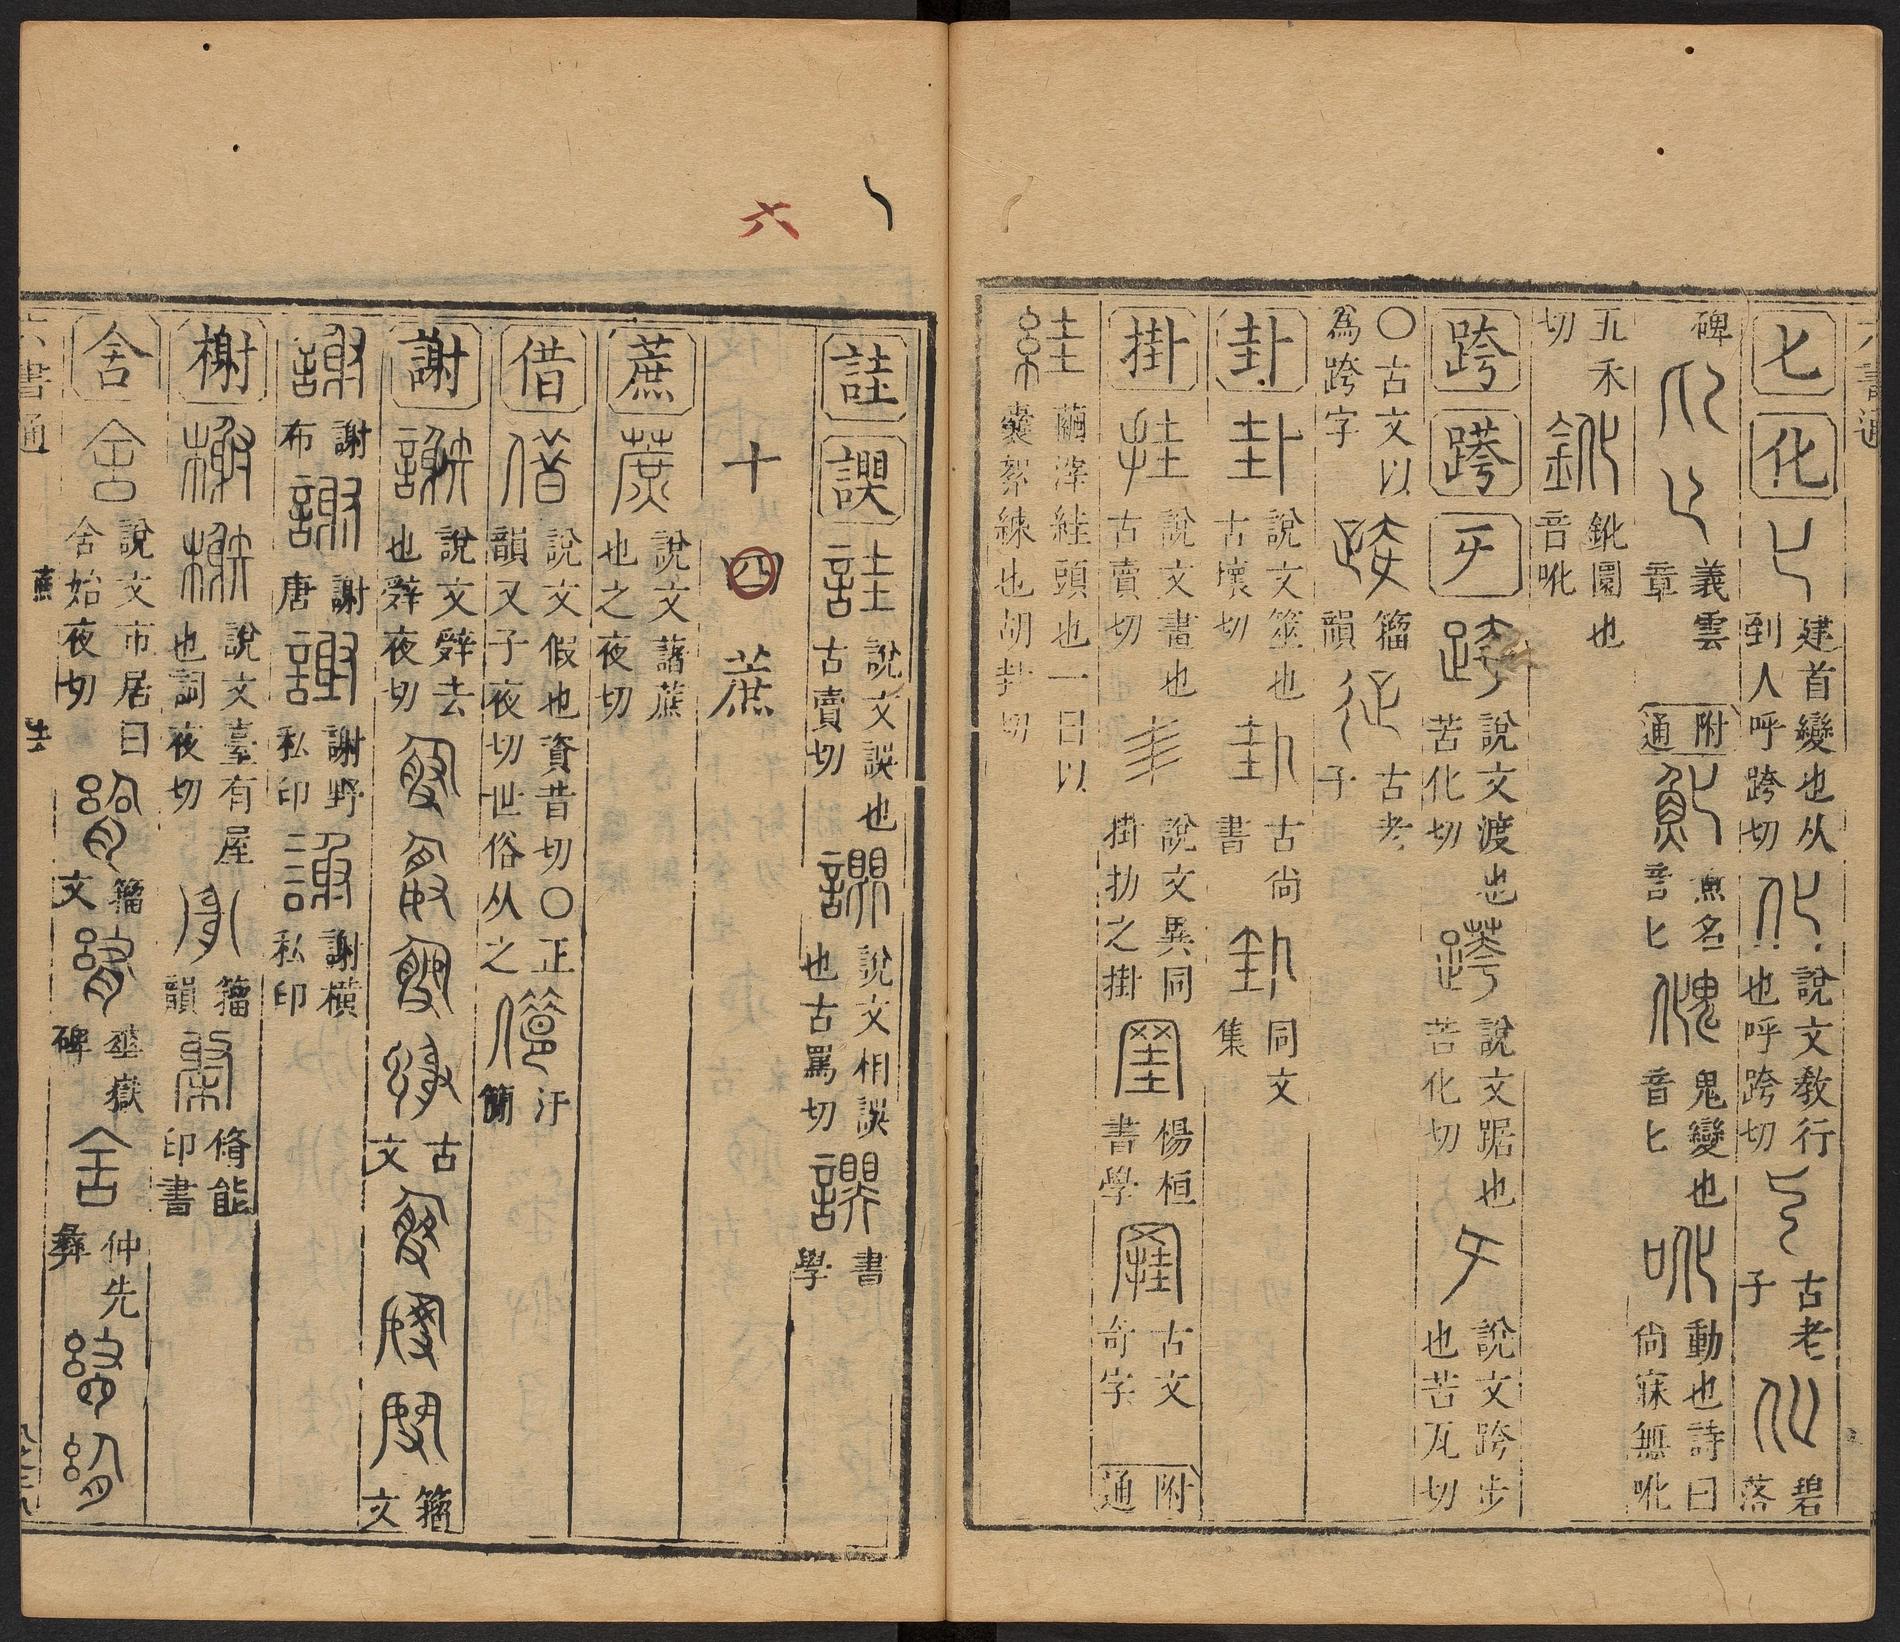 六書通
匕 化 建首變也从到人呼跨切 說文教行也呼跨切 古老子 碧落
碑 義雲章 附通 魚名音匕 鬼變也音匕 動也詩曰尚寐無吪
五禾切 鈋圜也音吪
跨 䠸 㐄 說文渡也苦化切 說文踞也苦化切 說文跨步也苦瓦切
〇古文以為跨字 籀韻 古老子
卦 說文筮也古壞切 古尚書 同文集
掛 說文畫也古賣切 說文異同掛扐之掛 楊桓書學 古文奇字 附通
絓 繭滓絓頭也一曰以囊絮練也胡卦切
六
詿 諆 說文誤也古賣切 說文相誤也古罵切 書學
十四蔗
蔗 說文藷蔗也之夜切
借 說文假也資昔切〇正韻又子夜切世俗从之 汗簡
謝 說文辤去也辤夜切 古文 籀文
謝布 謝唐 謝野私印 謝橫私印
榭 說文臺有屋也詞夜切 籀韻 脩能印書
舍 說文市居曰舍始夜切 籀文 華嶽碑 仲先彝
六書通 蔗 去